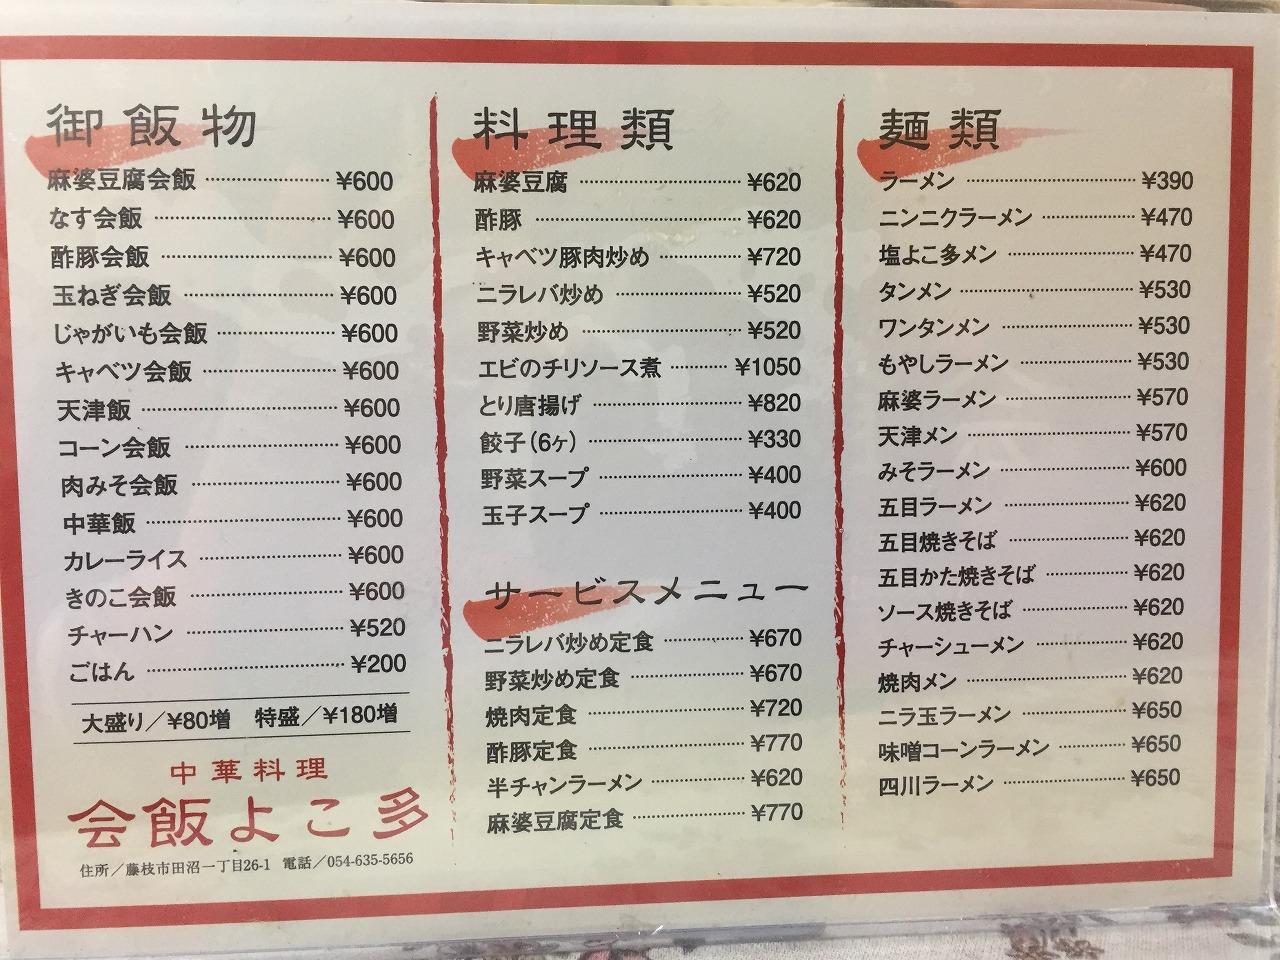 御飯物
麻婆豆腐会飯 ¥600
なす会飯 ¥600
酢豚会飯 ¥600
玉ねぎ会飯 ¥600
じゃがいも会飯 ¥600
キャベツ会飯 ¥600
天津飯 ¥600
コーン会飯 ¥600
肉みそ会飯 ¥600
中華飯 ¥600
カレーライス ¥600
きのこ会飯 ¥600
チャーハン ¥520
ごはん ¥200
大盛り／¥80増 特盛／¥180増
中華料理
会飯よこ多
住所／藤枝市田沼一丁目26-1 電話／054-635-5656
料理類
麻婆豆腐 ¥620
酢豚 ¥620
キャベツ豚肉炒め ¥720
ニラレバ炒め ¥520
野菜炒め ¥520
エビのチリソース煮 ¥1050
とり唐揚げ ¥820
餃子（6ヶ） ¥330
野菜スープ ¥400
玉子スープ ¥400
サービスメニュー
ニラレバ炒め定食 ¥670
野菜炒め定食 ¥670
焼肉定食 ¥720
酢豚定食 ¥770
半チャンラーメン ¥620
麻婆豆腐定食 ¥770
麺類
ラーメン ¥390
ニンニクラーメン ¥470
塩よこ多メン ¥470
タンメン ¥530
ワンタンメン ¥530
もやしラーメン ¥530
麻婆ラーメン ¥570
天津メン ¥570
みそラーメン ¥600
五目ラーメン ¥620
五目焼きそば ¥620
五目かた焼きそば ¥620
ソース焼きそば ¥620
チャーシューメン ¥620
焼肉メン ¥620
ニラ玉ラーメン ¥650
味噌コーンラーメン ¥650
四川ラーメン ¥650